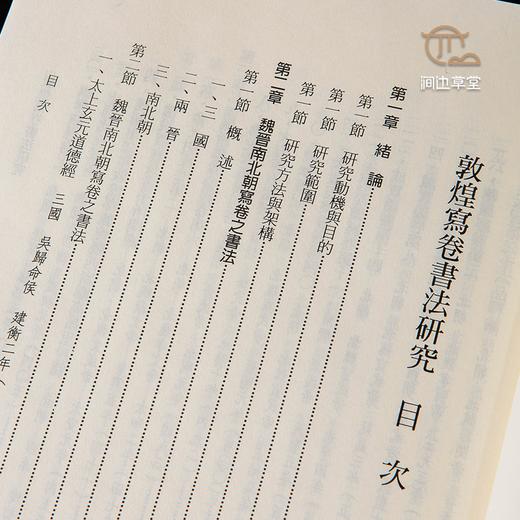 敦煌寫卷書法研究　目　次
第一章　緒　論
第一節　研究動機與目的
第一節　研究範圍
第一節　研究方法與架構
第二章　魏晉南北朝寫卷之書法
第一節　概　述
一、三　國
二、兩　晉
三、南北朝
第二節　魏晉南北朝寫卷之書法
一、太上玄元道德經　三國　吳歸命侯　建衡二年（
目　次
间边草堂